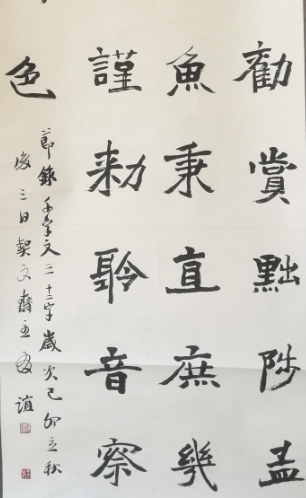 勸賞黜陟孟
魚秉直庶幾
謹敕聆音察
色
節錄千字文三十二字歲次己卯立秋
後三日契文齋主誼